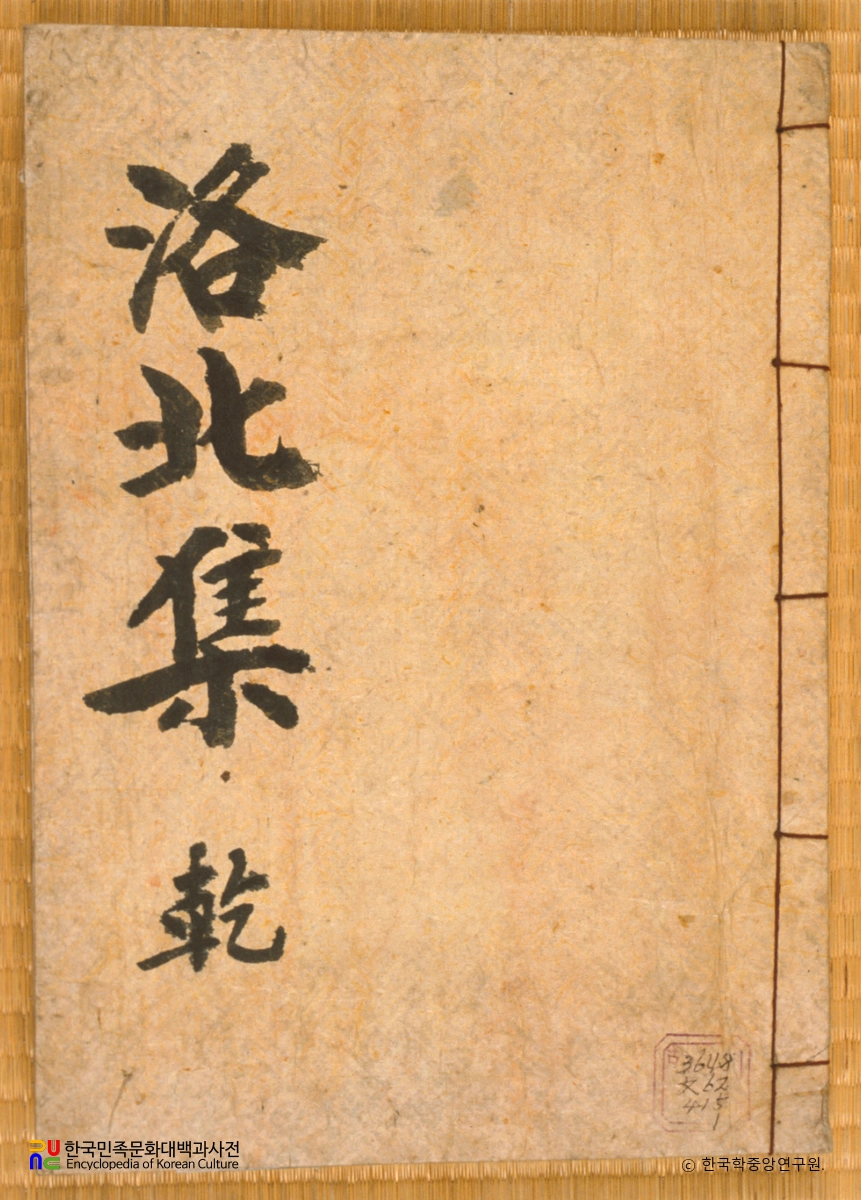 洛北集
乾
3648
文62
415
1
한국민족문화대백과사전
Encyclopedia of Korean Culture
© 한국학중앙연구원.